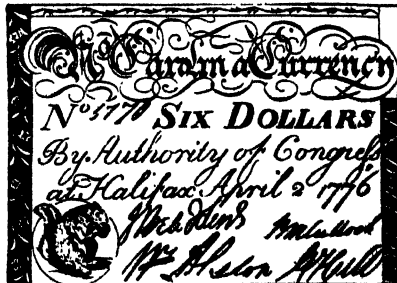 No Carolina Currency
No 5770 SIX DOLLARS
By Authority of Congress
at Halifax April 2 1776
Wm Alston